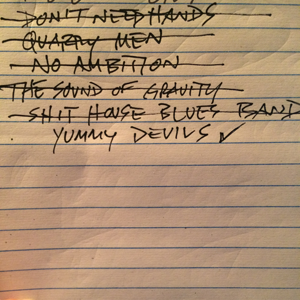 DON'T NEED HANDS
QUARRY MEN
NO AMBITION
THE SOUND OF GRAVITY
SHIT HOUSE BLUES BAND
YUMMY DEVILS ✓